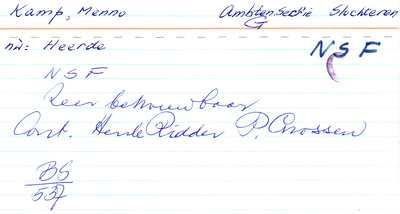 Kamp, Menno Ambten Sectie Slochteren
G
n.w: Heerde NSF
NSF
Zeer betrouwbaar
Cont. Henk Ridder P. Crossen
BS
537